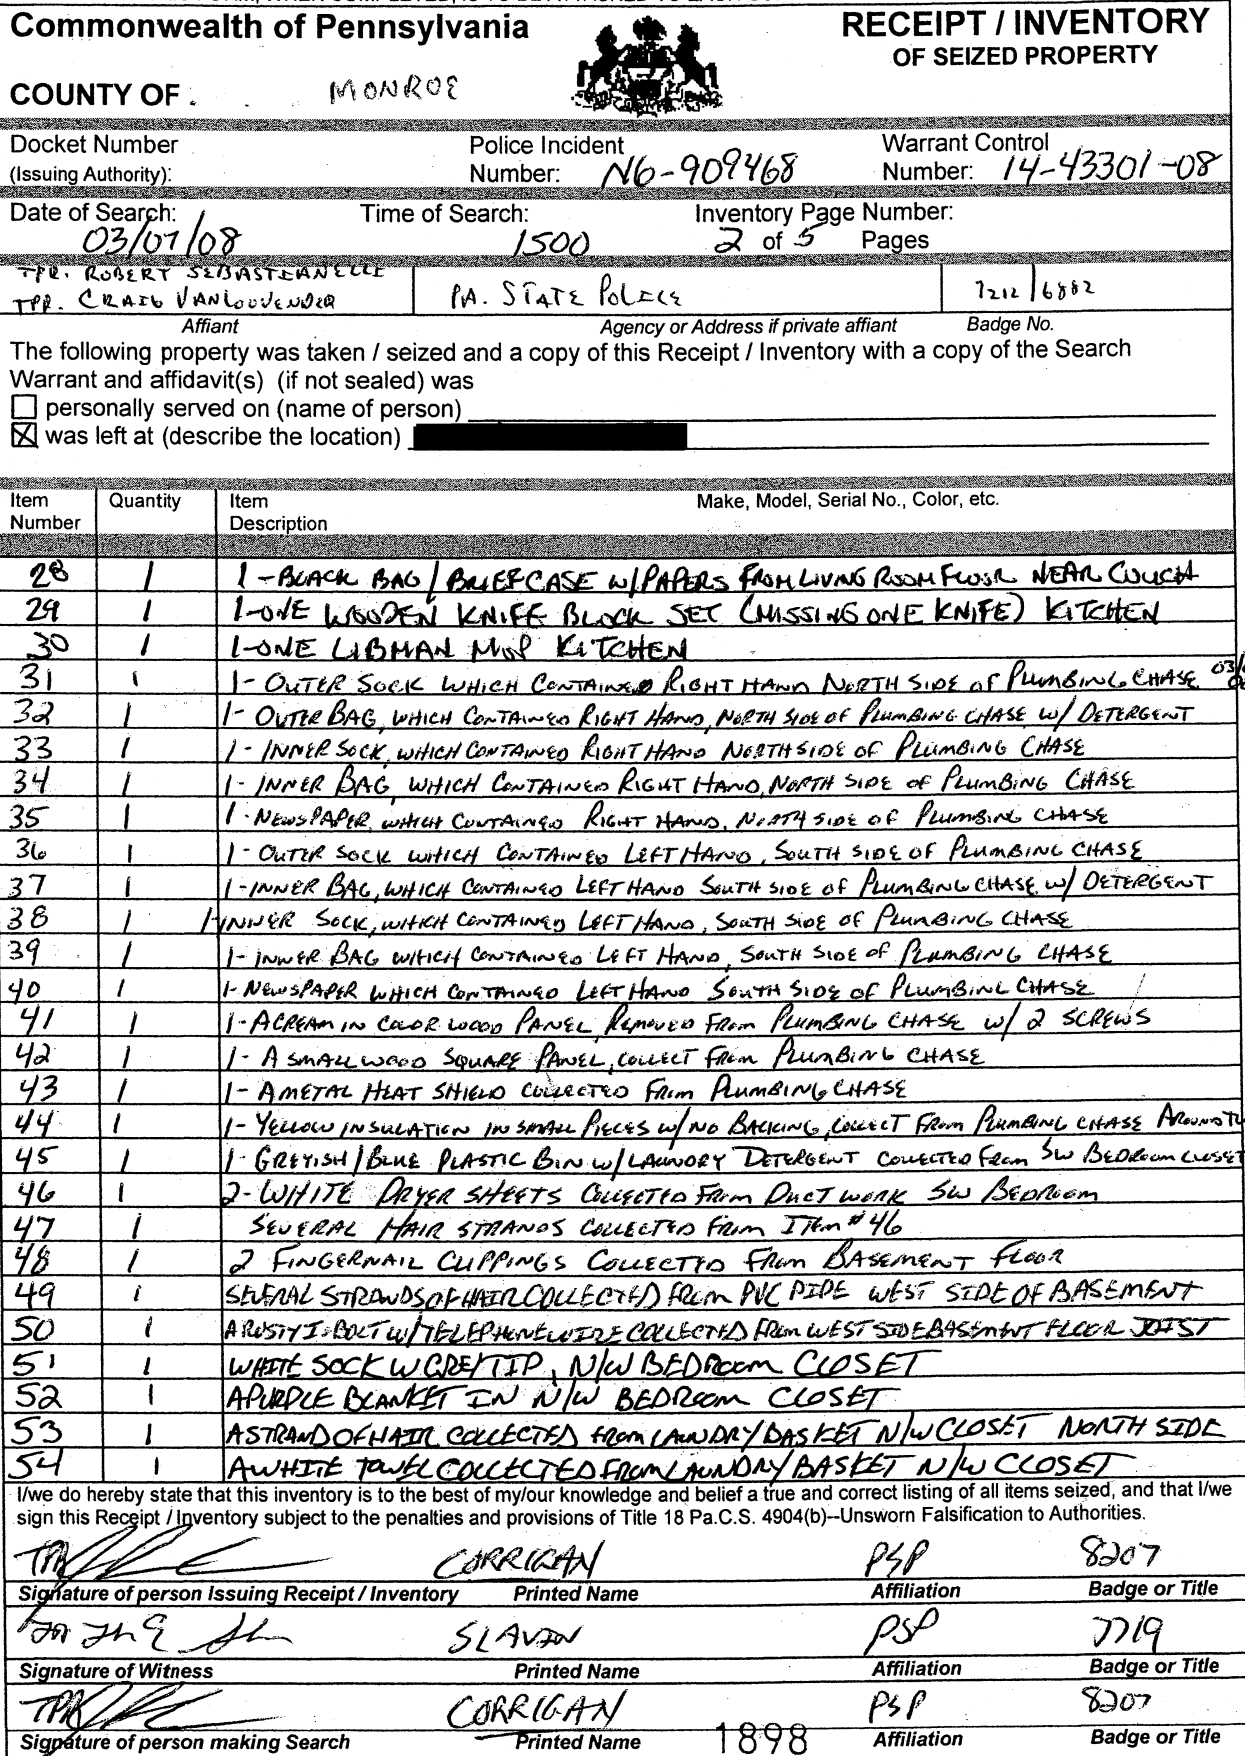 Commonwealth of Pennsylvania
RECEIPT / INVENTORY
OF SEIZED PROPERTY
COUNTY OF. MONROE
Docket Number
(Issuing Authority):
Police Incident
Number: N6-909468
Warrant Control
Number: 14-43301-08
Date of Search:
03/07/08
Time of Search:
1500
Inventory Page Number:
2 of 5 Pages
TPR. ROBERT SEBASTIANELLI
TPR. CRAIG VANLOUVENDER
PA. STATE POLICE
7212/6882
Affiant
Agency or Address if private affiant
Badge No.
The following property was taken / seized and a copy of this Receipt / Inventory with a copy of the Search
Warrant and affidavit(s) (if not sealed) was
personally served on (name of person)
was left at (describe the location)
Item Number Quantity Item Description Make, Model, Serial No., Color, etc.
28 1 1-BLACK BAG / BRIEFCASE W/PAPERS FROM LIVING ROOM FLOOR NEAR COUCH
29 1 1-ONE WOODEN KNIFE BLOCK SET (MISSING ONE KNIFE) KITCHEN
30 1 1-ONE LIBMAN MOP KITCHEN
31 1 1- OUTER SOCK WHICH CONTAINED RIGHT HAND NORTH SIDE OF PLUMBING CHASE
32 1 1- OUTER BAG, WHICH CONTAINED RIGHT HAND, NORTH SIDE OF PLUMBING CHASE W/ DETERGENT
33 1 1- INNER SOCK, WHICH CONTAINED RIGHT HAND NORTH SIDE OF PLUMBING CHASE
34 1 1- INNER BAG, WHICH CONTAINED RIGHT HAND, NORTH SIDE OF PLUMBING CHASE
35 1 1- NEWSPAPER, WHICH CONTAINED RIGHT HAND, NORTH SIDE OF PLUMBING CHASE
36 1 1- OUTER SOCK WHICH CONTAINED LEFT HAND, SOUTH SIDE OF PLUMBING CHASE
37 1 1-INNER BAG, WHICH CONTAINED LEFT HAND SOUTH SIDE OF PLUMBING CHASE W/ DETERGENT
38 1 1-INNER SOCK, WHICH CONTAINED LEFT HAND, SOUTH SIDE OF PLUMBING CHASE
39 1 1- INNER BAG WHICH CONTAINED LEFT HAND, SOUTH SIDE OF PLUMBING CHASE
40 1 1- NEWSPAPER WHICH CONTAINED LEFT HAND SOUTH SIDE OF PLUMBING CHASE
41 1 1- A CREAM IN COLOR WOOD PANEL, REMOVED FROM PLUMBING CHASE W/ 2 SCREWS
42 1 1- A SMALL WOOD SQUARE PANEL, COLLECT FROM PLUMBING CHASE
43 1 1- A METAL HEAT SHIELD COLLECTED FROM PLUMBING CHASE
44 1 1- YELLOW INSULATION IN SMALL PIECES W/ NO BACKING, COLLECT FROM PLUMBING CHASE AROUND
45 1 1- GREYISH/BLUE PLASTIC BIN W/ LAUNDRY DETERGENT COLLECTED FROM SW BEDROOM CLOSET
46 1 2- WHITE DRYER SHEETS COLLECTED FROM DUCT WORK SW BEDROOM
47 1 SEVERAL HAIR STRANDS COLLECTED FROM ITEM #46
48 1 2 FINGERNAIL CLIPPINGS COLLECTED FROM BASEMENT FLOOR
49 1 SEVERAL STRANDS OF HAIR COLLECTED FROM PVC PIPE WEST SIDE OF BASEMENT
50 1 A RUSTY I-BOLT W/TELEPHONE WIRE COLLECTED FROM WEST SIDE BASEMENT FLOOR JOIST
51 1 WHITE SOCK W GREY TIP, N/W BEDROOM CLOSET
52 1 A PURPLE BLANKET IN N/W BEDROOM CLOSET
53 1 A STRAND OF HAIR COLLECTED FROM LAUNDRY BASKET N/W CLOSET NORTH SIDE
54 1 A WHITE TOWEL COLLECTED FROM LAUNDRY BASKET N/W CLOSET
I/we do hereby state that this inventory is to the best of my/our knowledge and belief a true and correct listing of all items seized, and that I/we
sign this Receipt / Inventory subject to the penalties and provisions of Title 18 Pa.C.S. 4904(b)--Unsworn Falsification to Authorities.
TPR CORRIGAN PSP 8207
Signature of person Issuing Receipt / Inventory Printed Name Affiliation Badge or Title
SLAVIN PSP 7719
Signature of Witness Printed Name Affiliation Badge or Title
TPR CORRIGAN PSP 8207
Signature of person making Search Printed Name 1898 Affiliation Badge or Title